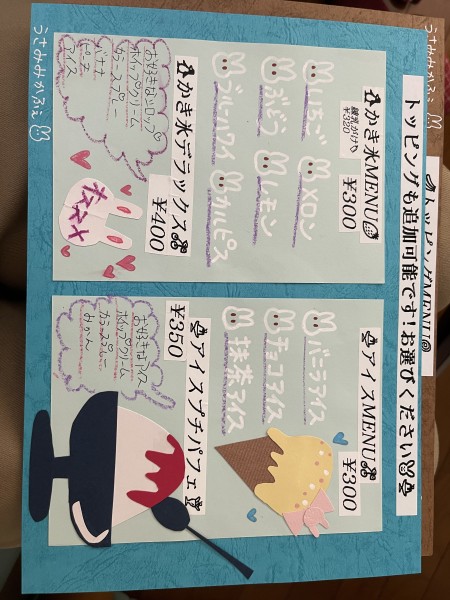 うさみみかふぇ
トッピングMENU
トッピングも追加可能です!お選びください
かき氷MENU
¥300
練乳がけ
¥320
いちご
メロン
ぶどう
レモン
ブルーハワイ
カルピス
かき氷デラックス
¥400
お好きなシロップ
ホイップクリーム
カラースプレー
バナナ
アイス
オススメ
アイスMENU
¥300
バニラアイス
チョコアイス
抹茶アイス
アイスプチパフェ
¥350
お好きなアイス
ホイップクリーム
カラースプレー
みかん
うさみみかふぇ